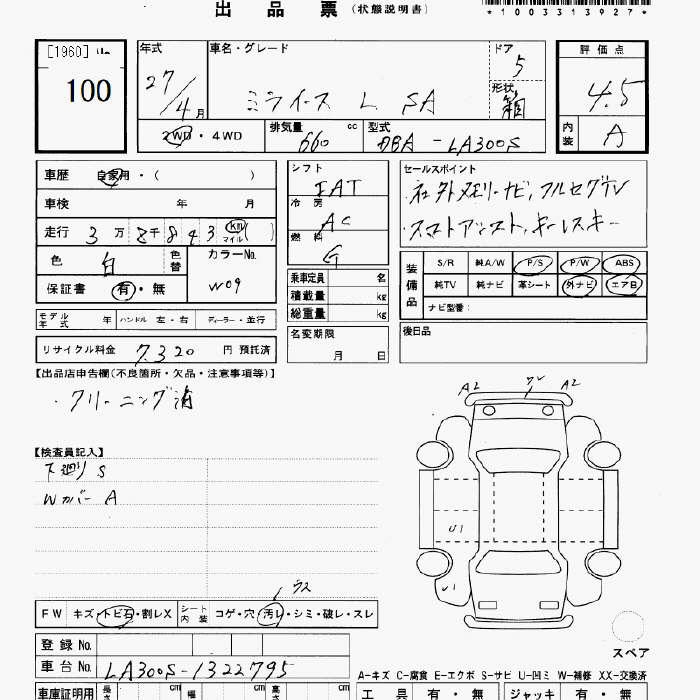 出 品 票 (状態説明書)
*1003313927*
[1960]
100
年式 27/4月
車名・グレード ミライース L SA
ドア 5
形状 箱
評価点 4.5
内装 A
2WD・4WD
排気量 660 cc
型式 DBA-LA300S
車歴 自家用・( )
車検 年 月
走行 3万8千843 km マイル ( )
色 白 色替
カラーNo. W09
保証書 有・無
シフト IAT
冷房 AC
燃料 G
乗車定員 名
積載量 kg
総重量 kg
セールスポイント
社外メモリーナビ,フルセグTV
スマートアシスト,キーレスキー
装備品
S/R 純A/W P/S P/W ABS
純TV 純ナビ 革シート 外ナビ エアB
ナビ型番:
モデル年式 年 ハンドル 左・右 ディーラー・並行
名変期限 月 日
後日品
リサイクル料金 7,320 円 預託済
【出品店申告欄(不良箇所・欠品・注意事項等)】
・クリーニング済
A2 A2
【検査員記入】
下廻り S
Wカバー A
U1
U1
FW キズ・トビ石・割レX
シート内装 コゲ・穴・汚レ・シミ・破レ・スレ
スペア
登録No.
車台No. LA300S-1322795
A-キズ C-腐食 E-エクボ S-サビ U-凹ミ W-補修 XX-交換済
車庫証明用 長さ cm 幅 cm 高さ cm
工具 有・無 ジャッキ 有・無